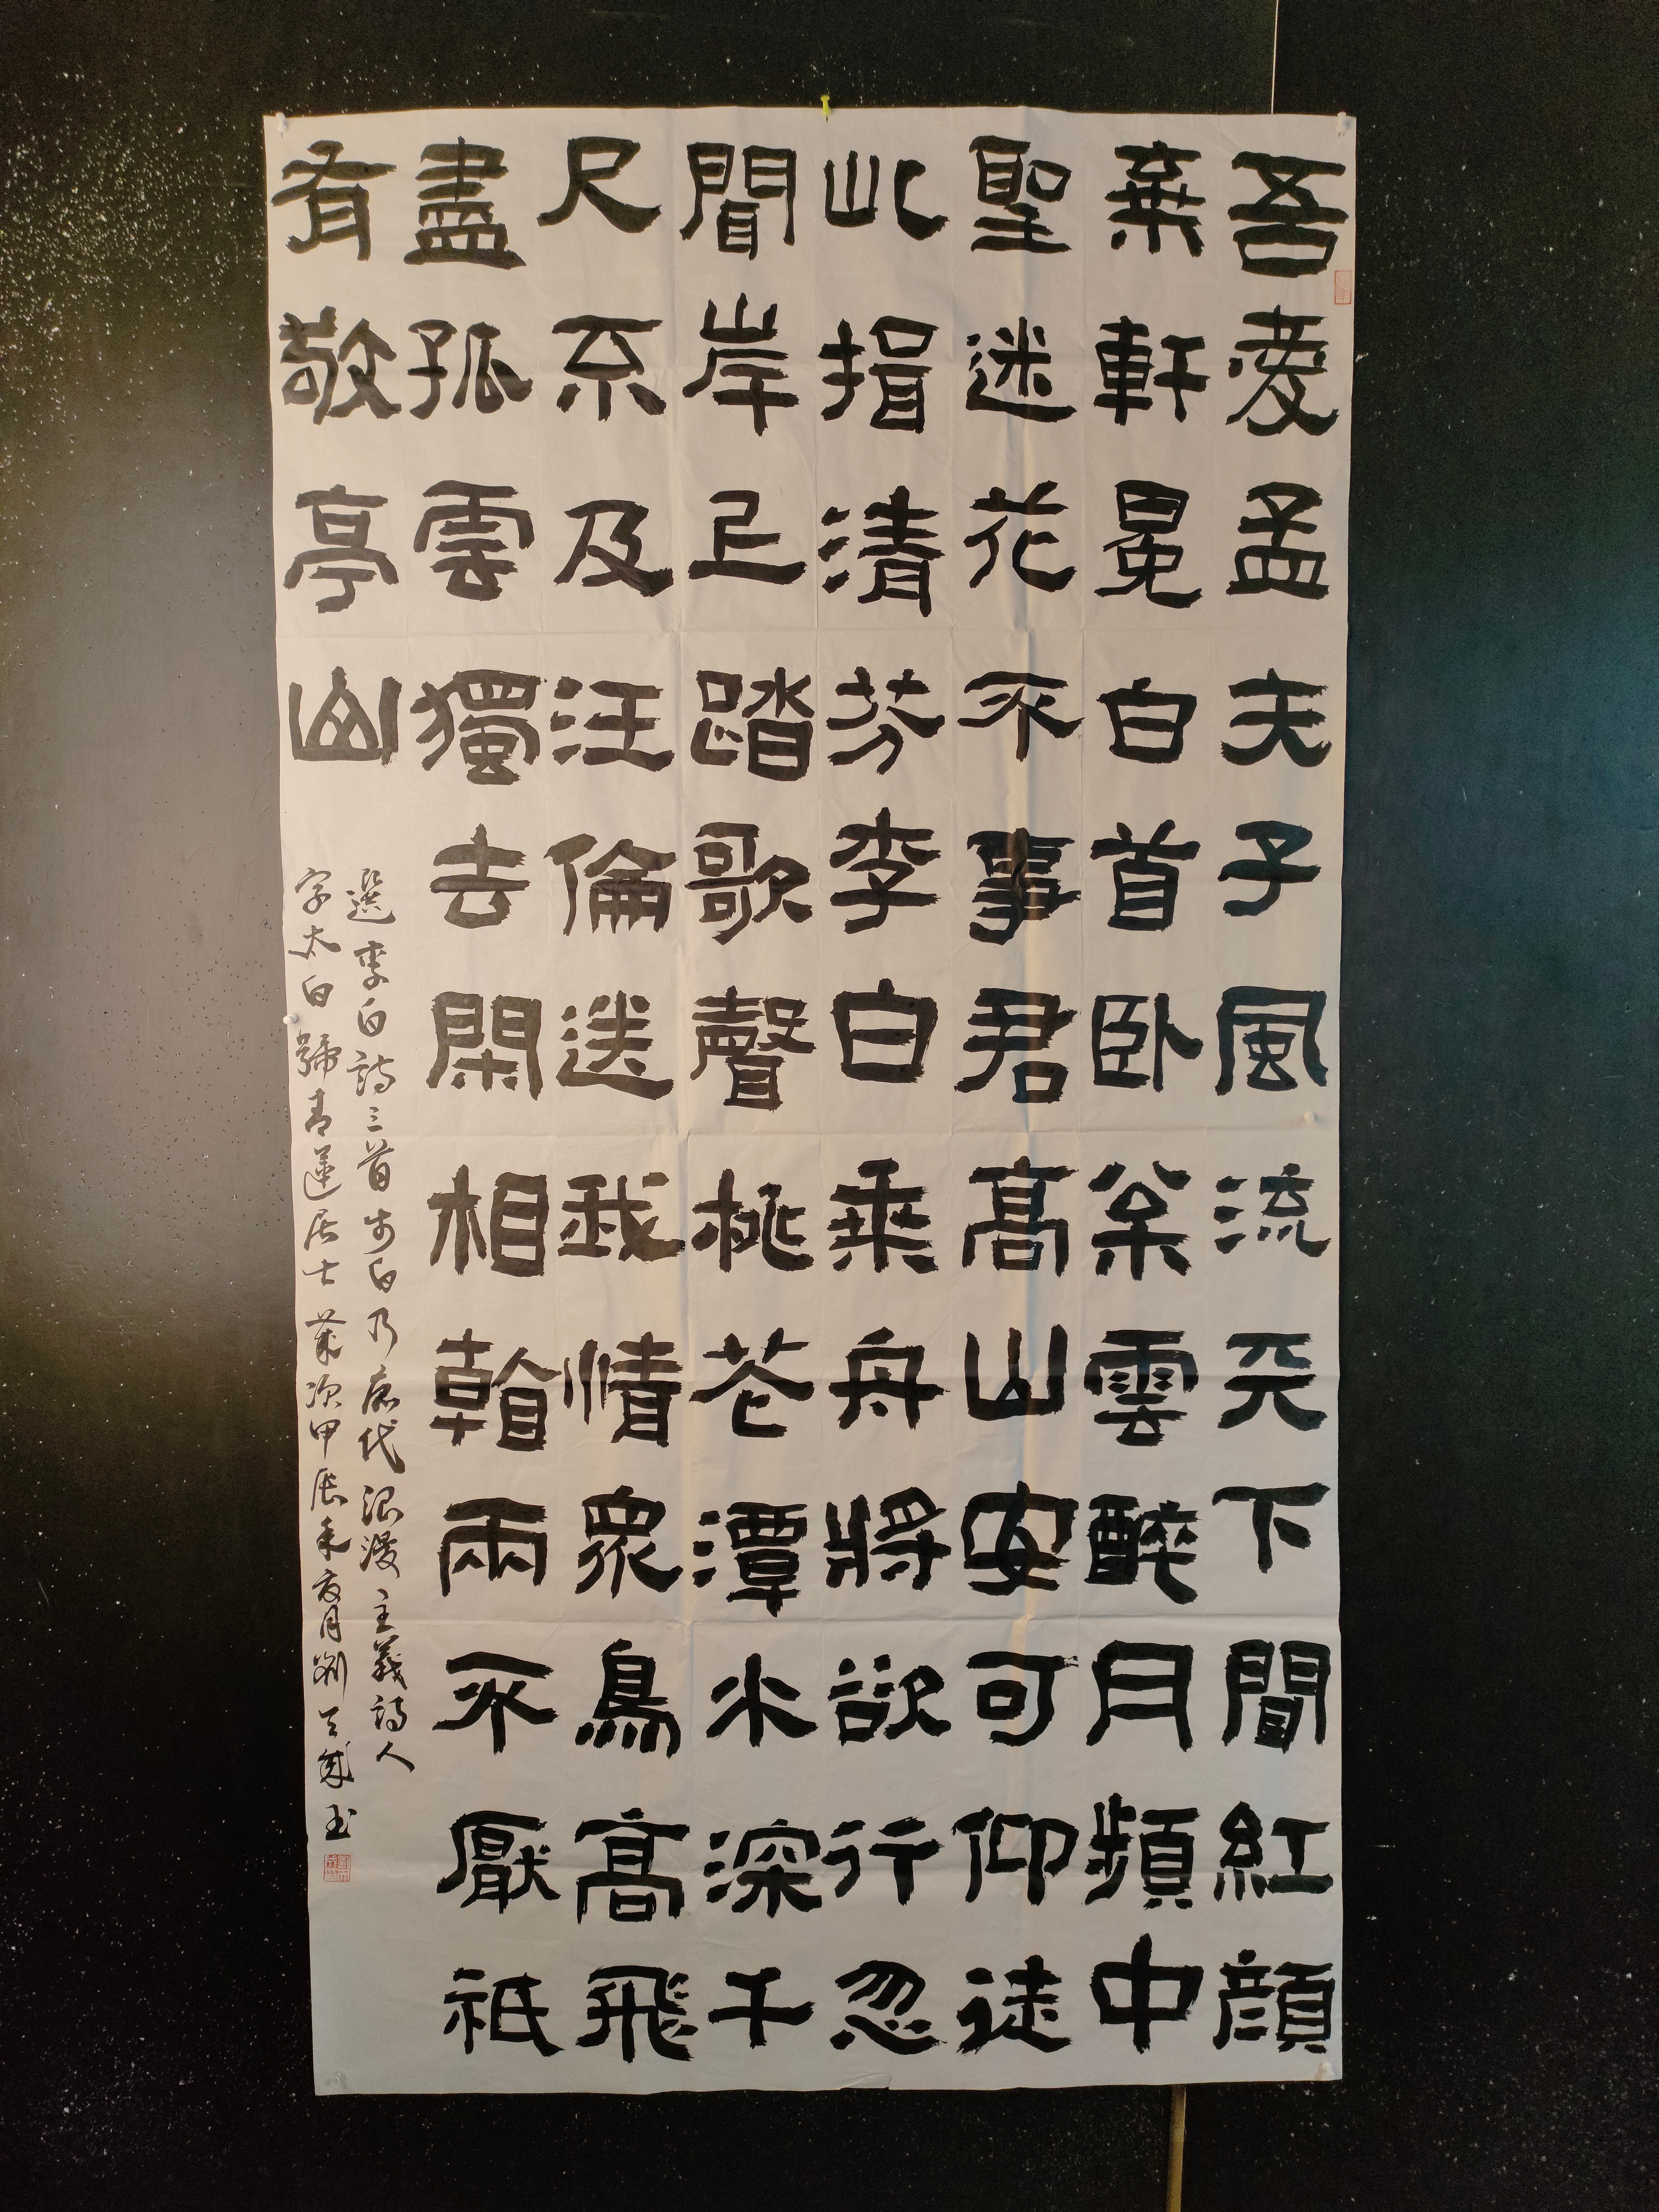 吾愛孟夫子風流天下聞紅顔
棄軒冕白首卧松雲醉月頻中
聖迷花不事君高山安可仰徒
此揖清芬李白乘舟將欲行忽
聞岸上踏歌聲桃花潭水深千
尺不及汪倫送我情眾鳥高飛
盡孤雲獨去閑相看兩不厭祇
有敬亭山
選李白詩三首白乃唐代浪漫主義詩人
字太白號青蓮居士歲次甲辰年夏月劉